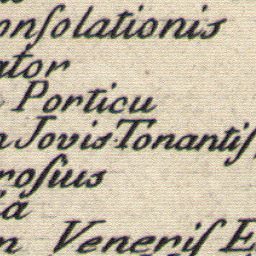 onſolationis
ator
Porticu
Jovis Tonantiſ
roſius
ia
n Veneriſ E